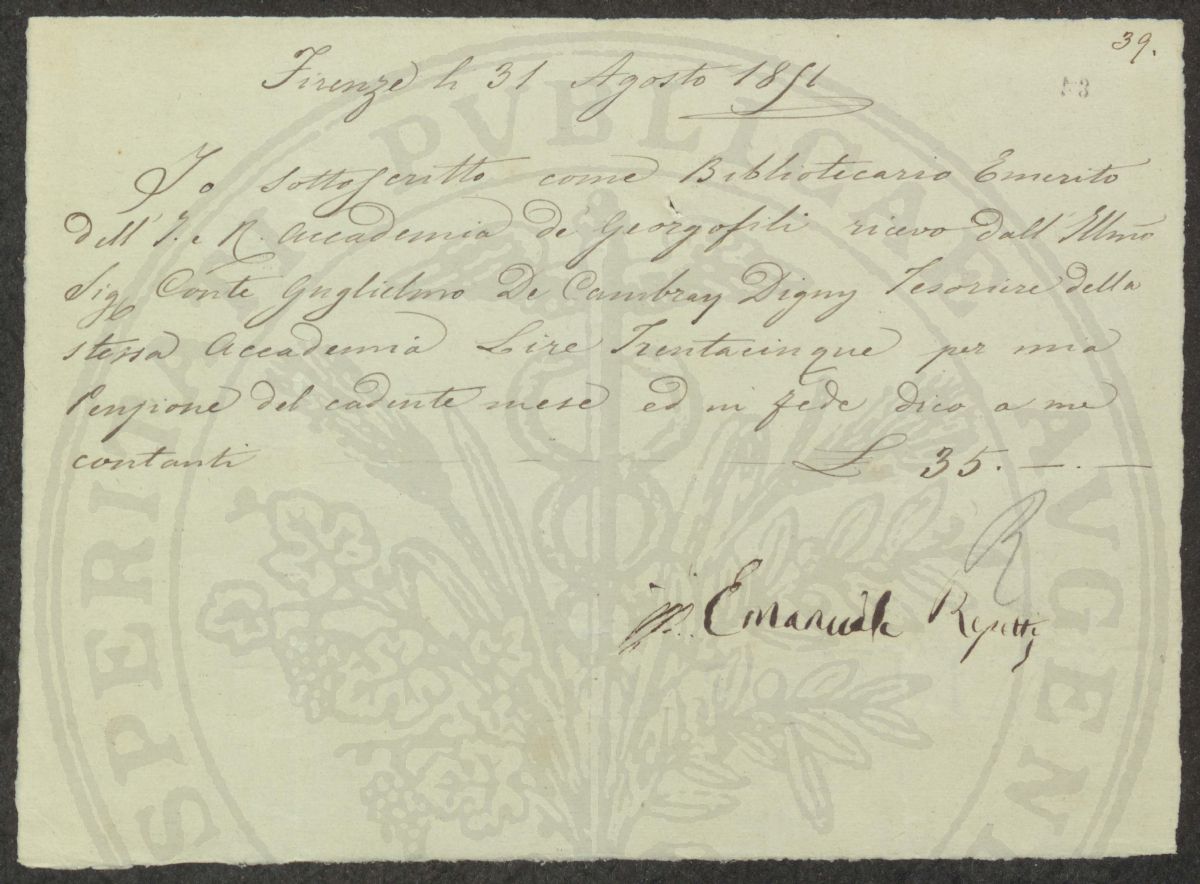 39.
Firenze li 31 Agosto 1851
Io sottoscritto come Bibliotecario Emerito
dell' I. e R. Accademia de Georgofili ricevo dall' Illmo
Sig Conte Guglielmo De Cambray Digny Tesoriere della
stessa Accademia Lire Trentacinque per mia
Penzione del cadente mese ed in fede dico a me
contanti — L 35. — . —
R
Emanuele Repetti
PUBLICAE AUGEN
SPERITAM